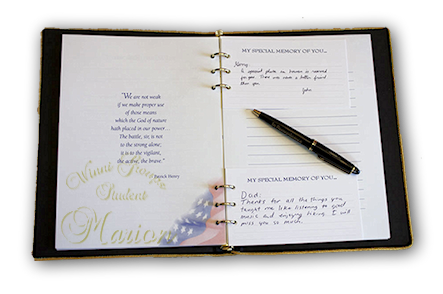 "We are not weak
if we make proper use
of those means
which the God of nature
hath placed in our power...
The battle, sir, is not
to the strong alone;
it is to the vigilant,
the active, the brave."
Patrick Henry
Student
Marion
MY SPECIAL MEMORY OF YOU...
Nancy
A special place in heaven is reserved
for you. There was never a better friend
than you.
John
MY SPECIAL MEMORY OF YOU...
Dad:
Thanks for all the things you
taught me like listening to good
music and enjoying hiking. I will
miss you so much.